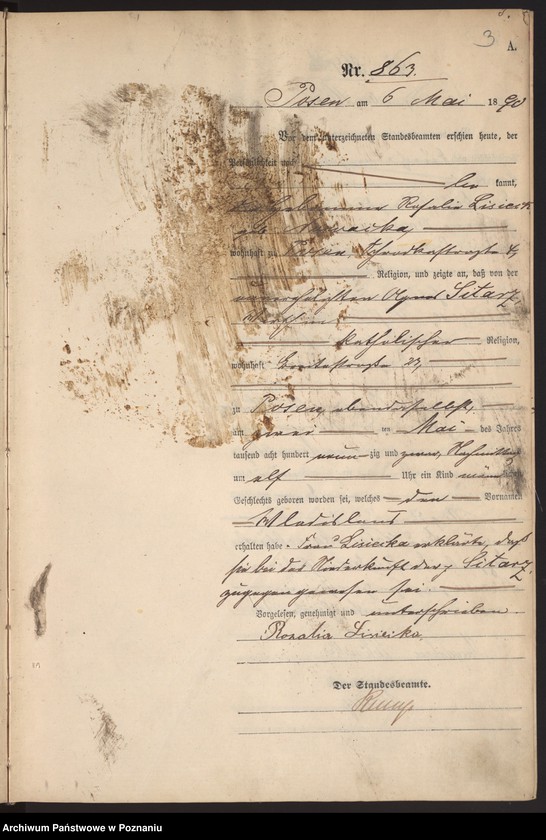 3
A.
Nr. 863.
Posen am 6 Mai 1890
Vor dem unterzeichneten Standesbeamten erschien heute, der
Persönlichkeit nach
kannt,
Rosalie Lisiecka
wohnhaft zu Posen,
Religion, und zeigte an, daß von der
unverehelichten Agnes Sitarz,
katholischer Religion,
wohnhaft Breitestraße 22,
zu Posen, ebendaselbst,
am zwei ten Mai des Jahres
tausend acht hundert neunzig und zwar Nachmittag
um elf Uhr ein Kind männlichen
Geschlechts geboren worden sei, welches den Vornamen
Wladislaus
erhalten habe. Frau Lisiecka erklärte, daß
sie bei der Niederkunft der Sitarz
zugegen gewesen sei.
Vorgelesen, genehmigt und unterschrieben.
Rozalia Lisiecka
Der Standesbeamte.
Archiwum Państwowe w Poznaniu